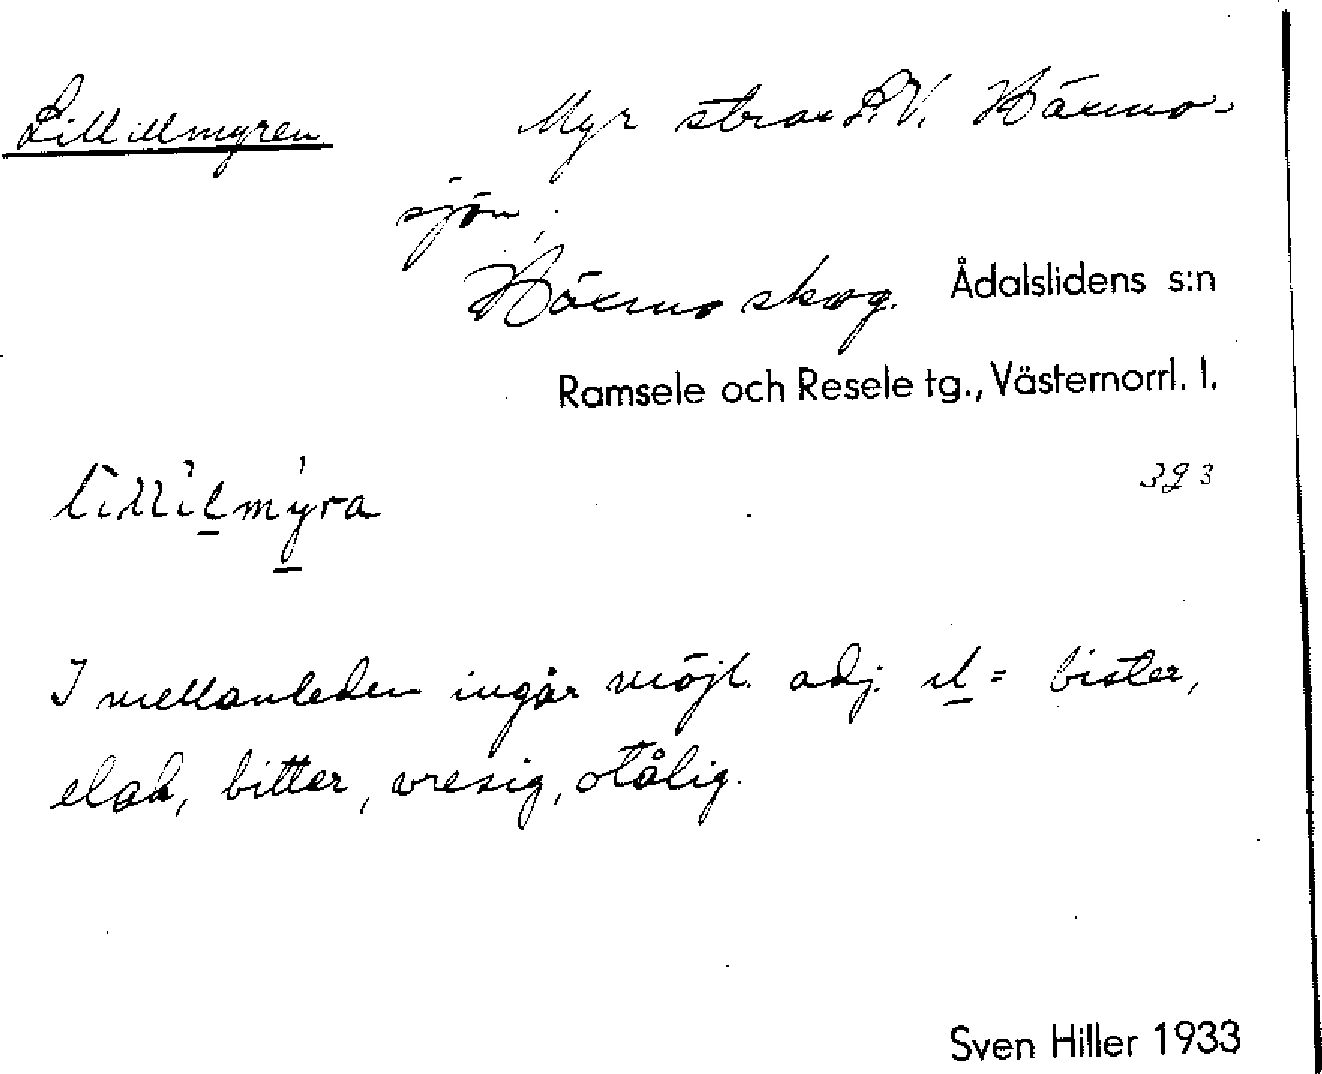 Lillillmyren Myr strax S.V. Häxmo-
sjön,
Häxmo skog. Ådalslidens s:n
Ramsele och Resele tg., Västernorrl. l.
323
lillilmyra
I mellanleden ingår möjl. adj. il = bister,
elak, bitter, vresig, otålig.
Sven Hiller 1933